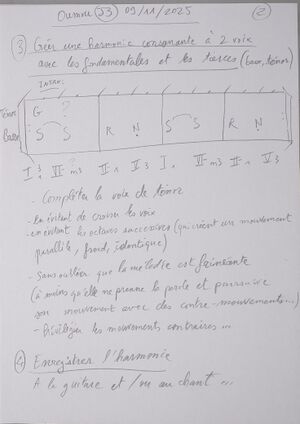 Oumou (S3) 09/11/2025 (2)
③ Créer une harmonie consonante à 2 voix
avec les fondamentales et les tierces (basse, ténor)
INTRO
G ?
Ténor
Basse S S R N S S R N
I VI-m3 II-1 V3 I1 VI-m3 II-1 V3
- Compléter la voix de ténor
- En évitant de croiser les voix
- en évitant les octaves successives (qui créent un mouvement
parallèle, froid, identique)
- Sans oublier que la mélodie est fainéante
(à moins qu'elle ne prenne la parole et poursuive
son mouvement avec des contre-mouvements...)
- Privilégier les mouvements contraires...
④ Enregistrer l'harmonie
A la guitare et/ou au chant...